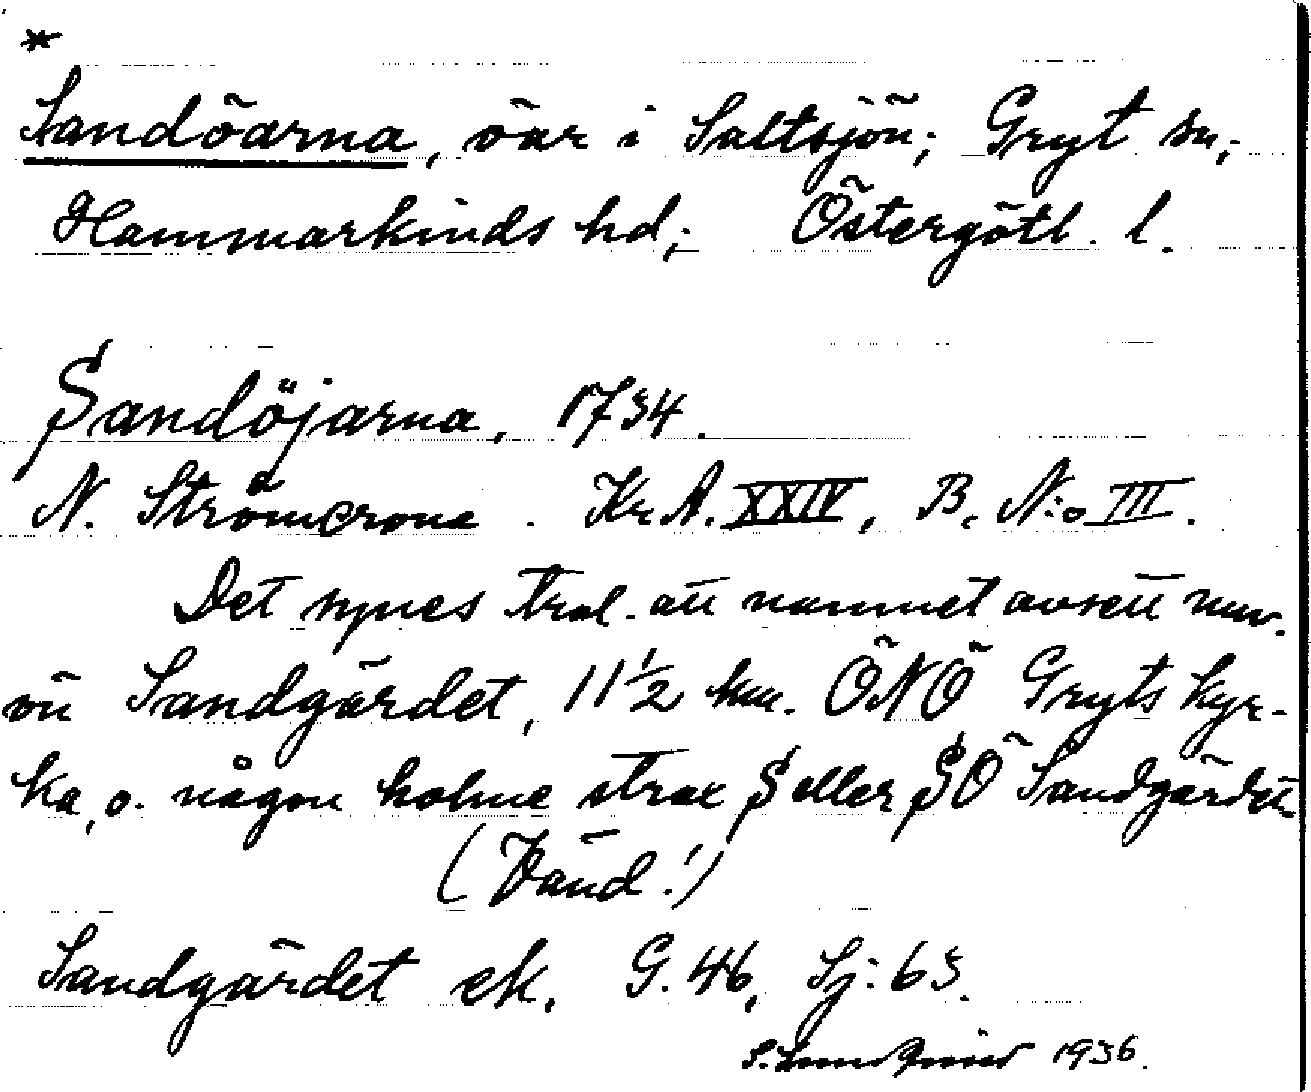 *
Sandöarna, öar i Saltsjön; Gryt sn;
Hammarkinds hd; Östergötl. l.
Sandöjarna, 1734.
N. Strömcrona. Kr. A. XXIV, B, N:o III.
Det synes trol. att namnet avsett nuv.
ön Sandgärdet, 11 1/2 km. ÖNÖ Gryts kyr-
ka, o. någon holme strax S eller SÖ Sandgärdet
(Vänd!)
Sandgärdet ek. G. 46, Sj: 63.
1936.